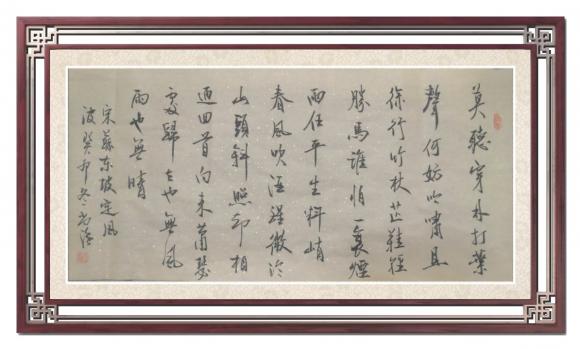 莫聽穿林打葉
聲何妨吟嘯且
徐行竹杖芒鞋輕
勝馬誰怕一蓑煙
雨任平生料峭
春風吹酒醒微冷
山頭斜照卻相
迎回首向來蕭瑟
處歸去也無風
雨也無晴
宋蘇東坡定風
波癸卯冬